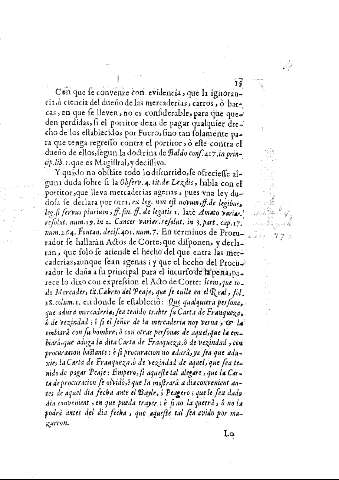 15
Con que se convenze con evidencia, que la ignoran-
cia, ò ciencia del dueño de las mercaderias, carros, ò bar-
cas, en que se lleven, no es considerable, para que que-
den perdidas, si el portitor dexa de pagar qualquier dre-
cho de los establecidos por Fuero, sino tan solamente pa-
ra que tenga regresso contra el portitor, ò este contra el
dueño de ellos, segun la doctrina de Baldo cons. 417. in prin-
cip. lib. 1. que es Magistral, y decissiva.
Y quando no obstàte todo lo discurrido, se ofreciesse al-
guni duda sobre si la Observ. 4. tit. de Lezdis, habla con el
portitor, que lleva mercaderias agenas; pues vna ley du-
dosa se declara por otra, ex leg. non est novum, ff. de legibus,
leg. si servus plurium, §. fin. ff. de legatis 1. latè Amato variar.
resolut. num. 19. to 2. Cancer variar. resolut. in 3. part. cap. 17.
num. 264. Fontan. decis. 401. num. 7. En terminos de Procu-
rador se hallaràn Actos de Corte, que disponen, y decla-
ran, que solo se atiende el hecho del que entra las mer-
caderias, aunque sean agenas; y que el hecho del Procu-
rador le daña a su principal para el incurso de la pena, pa-
rece lo dixo con expression el Acto de Corte: Item, que to-
do Mercader, tit. Cabreo del Peaje, que se tulle en el Real, fol.
28. colum. 1. en donde se estableciò: Que qualquiere persona,
que adurà mercaderia, sea tenido traher su Carta de Franqueza,
ò de vezindad: è si el señor de la mercaderia noy verna, è la
embiarà con su hombre, ò con otras personas de aquel, que la em-
biarà: que aduga la dita Carta de Franqueza, ò de vezindad, con
procuracion bastante: è si procuracion no adurà, ya sea que adu-
xie, la Carta de Franqueza, ò de vezindad de aquel, que sea te-
nido de pagar Peaje: Empero, si aqueste tal alegare, que la Car-
ta de procuracion se olvidò, è que la mostrarà a dia convenient an-
tes de aquel dia fecha ante el Bayle, ò Peagero; que le sea dado
dia convenient, en que pueda trayer; è si no la querrà, ò no la
podrà antes del dia fecha, que aqueste tal sea avido por ma-
garron.
Lo